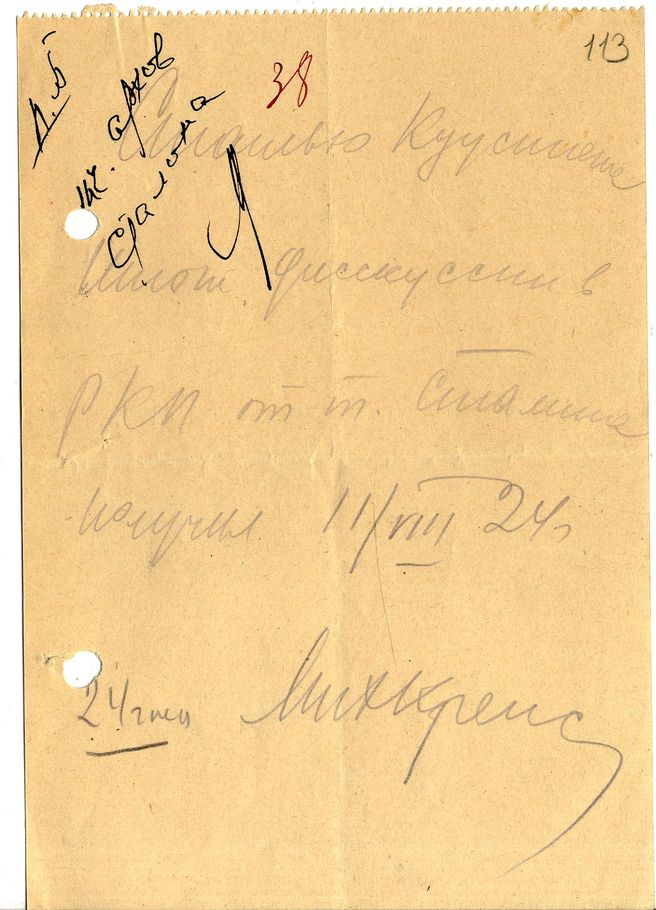 113
38
Л.Б
архив
Сталина
Статью Куусинена
Итоги дискуссии в
РКП от т. Сталина
получил 11/VIII 24 г
24